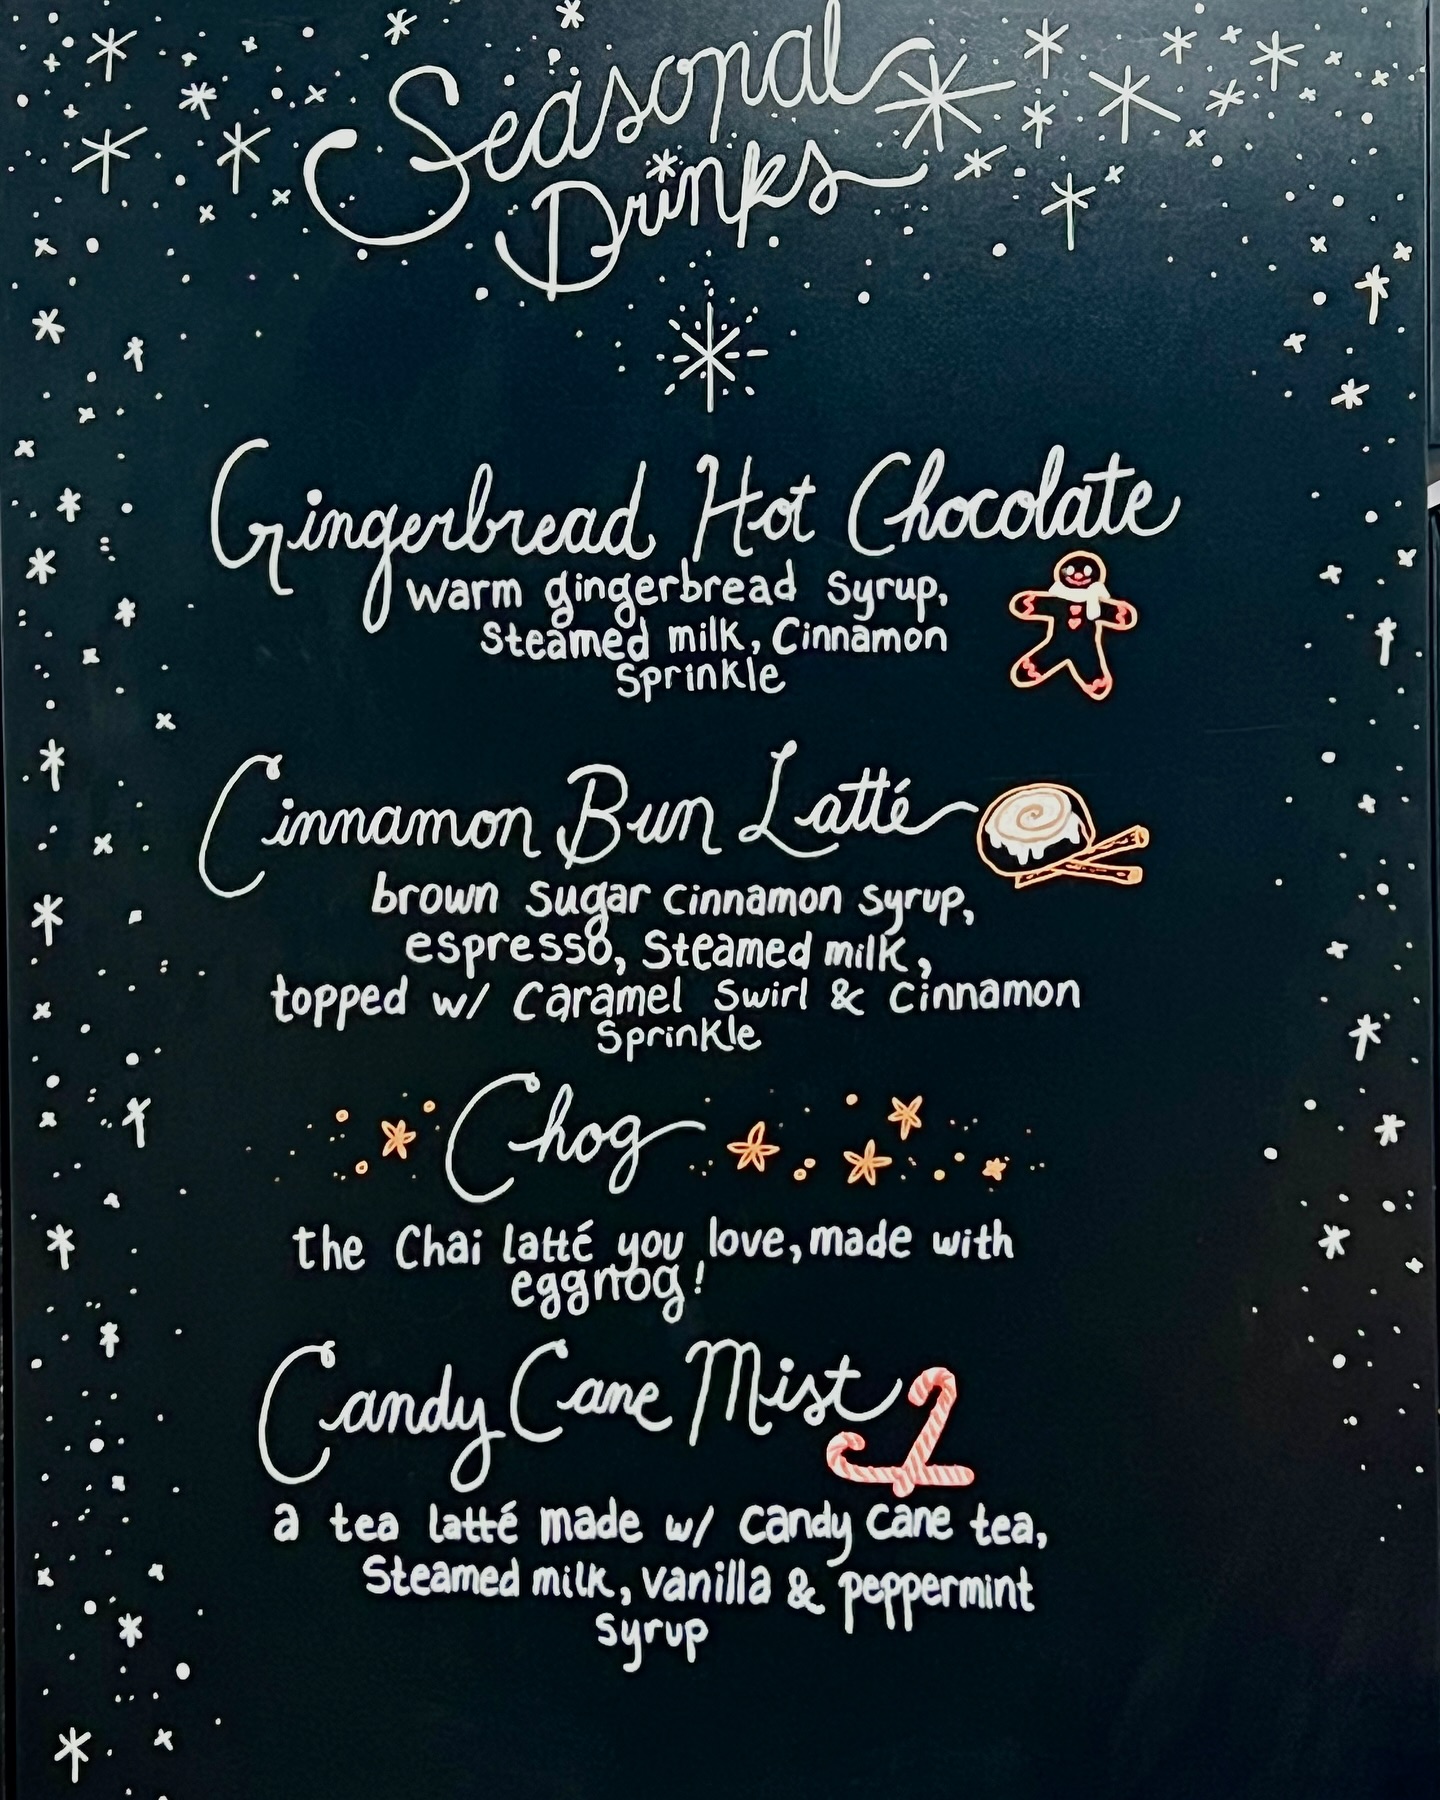 Seasonal
Drinks
Gingerbread Hot Chocolate
warm gingerbread syrup,
steamed milk, Cinnamon
Sprinkle
Cinnamon Bun Latté
brown sugar cinnamon syrup,
espresso, Steamed milk,
topped w/ caramel swirl & cinnamon
Sprinkle
Chog
the Chai latté you love, made with
eggnog!
Candy Cane Mist
a tea latté made w/ candy cane tea,
Steamed milk, vanilla & peppermint
syrup